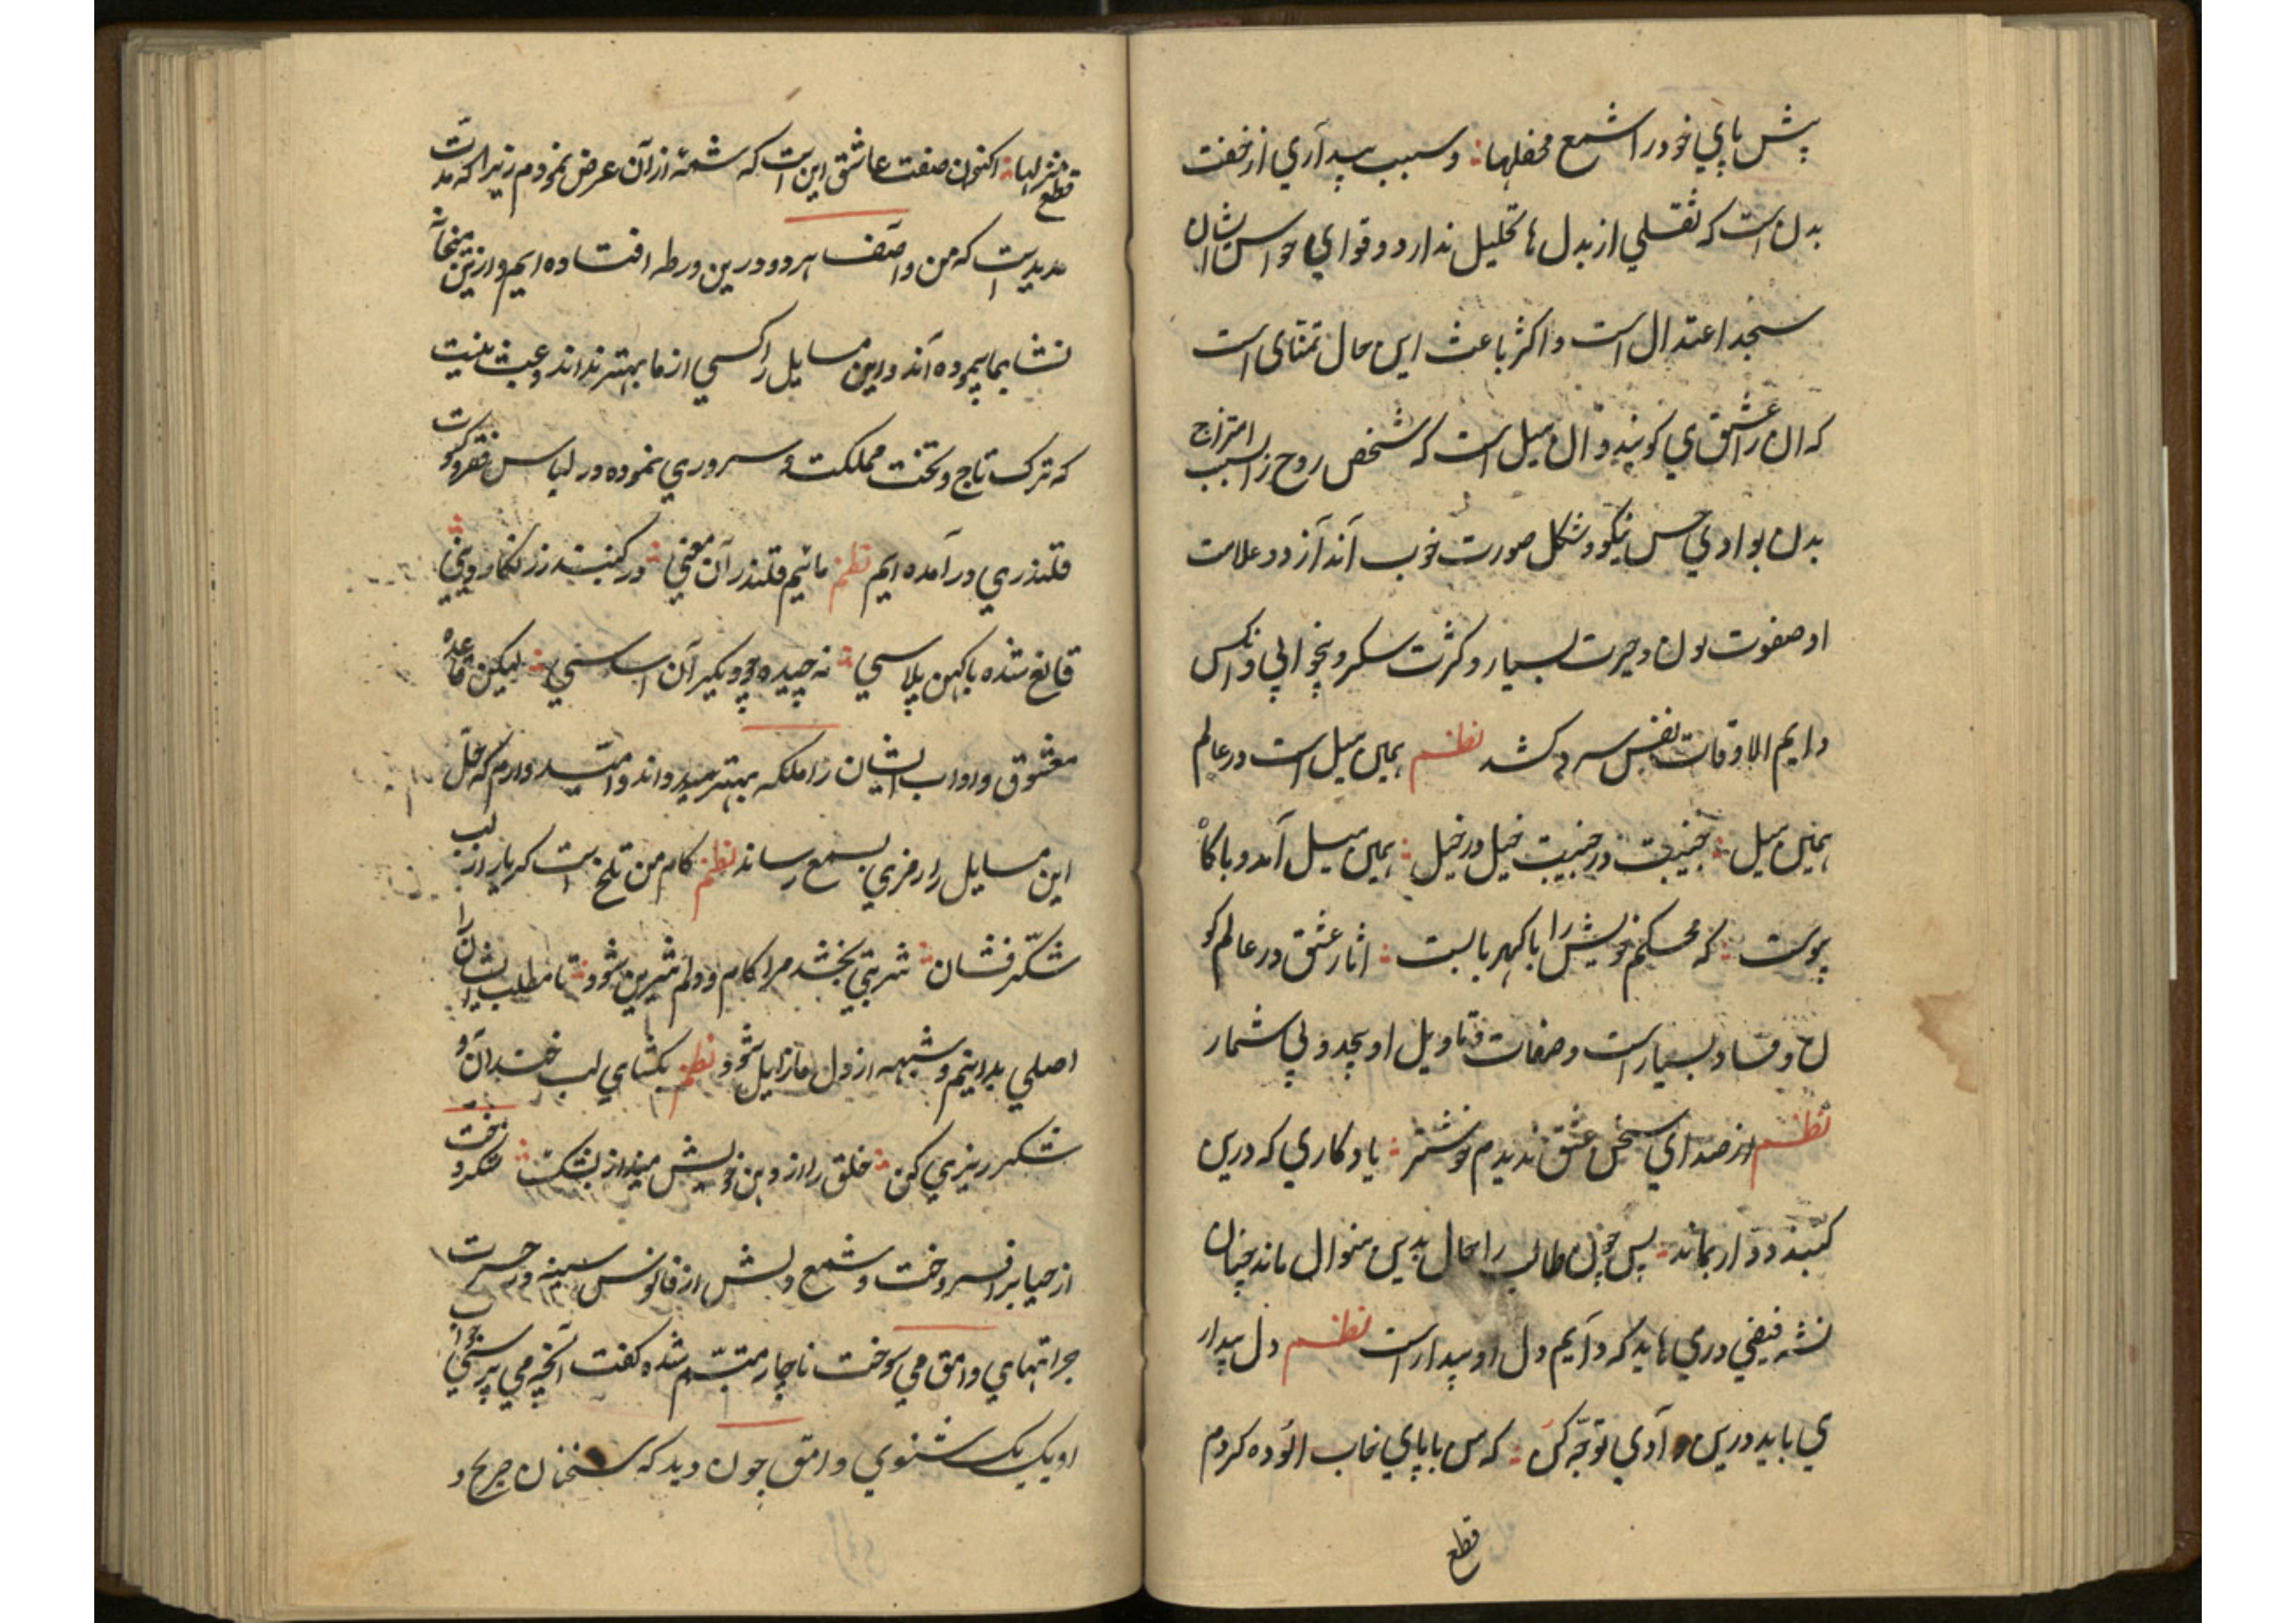 پش پاپي خود را شمع محفلها؛ و سبب بيدآري از خفت
بدن است که ثقلي از بدل ما تحليل ندارد و قواي حواس ايشان
سنجد اعتدال است و اکثر باعث اين حال تمنّاى است
که ان را عشق مي کويند و ان ميل است که شخص روح را بسبب امتزاج
بدن بوادي حسن نيکو و شکل صورت خوب آندآزد و علامت
او صفوت لون و حيرت بسيار و کثرت سکر و بيخوابي و انکس
دايم الاوقات نفس سرد کشد نظم همين ميل است در عالم
همين ميل؛ جنيبت در جنيبت خيل در خيل؛ همين ميل آمد و با کاه
پيوست؛ که محکم خويش را با کهربا بست؛ اثار عشق در عالم کو
ن و فساد بسيار است و صفات و تاويل او بيحد و بي شمار
نظم از صداي سخن عشق نديدم خوشتر؛ يادکاري که درين
کنبذ دوار بماند؛ پس چون طالب را حال بدين منوال ماند چنان
نشه فيضي درمي يابد که دآيم دل او بيدار است نظم دل بيدار
مي بايد درين وآدي توجّه کن؛ که من با پاي خاب الوده کردم
قطع
قطع منزلها؛ اکنون صفت عاشق اين است که شمهٔ از آن عرض نمودم زيرا که مدت
مديد است که من و آصف هر دو درين ورطه افتاده ايم و ازين ميخانه
نشا بما پيموده آند و اين مسايل را کسي از ما بهتر نداند و عبث نيست
که ترک تاج و تخت مملکت و سروري نموده در لباس فقر و کسوت
قلندري درآمده ايم نظم مائيم قلندران معني؛ در کنبذ زرنکار ويني؛
قانع شده با کهن پلاسي؛ نه چيده چو ديکران اساسي؛ ليکن قاعده
معشوق و اداب ايشان را ملکه بهتر ميداند و اميّد دارم که حلّ
اين مسايل را رمزي بسمع رساند نظم کام من تلخ است که يار از لب
شکّر فشان؛ شربتي بخشد مرا کام و دلم شيرين شود؛ تا مطلب ايشان را
اصلي بدانيم و شبهه از دل ما زايل شود نظم بکشاي لب خندان و
شکر ريزي کن؛ خلق را از دهن خويش مينداز بشک؛ شکر و خت
از حيا برافروخت و شمع دلش از فانوس سينه در حسرت
جرآتهاي وامق مي سوخت ناچار متبسّم شده کفت آنچه مي پرسي جواب
او يک يک شنوي وامق چون ديد که سخنان صريح و